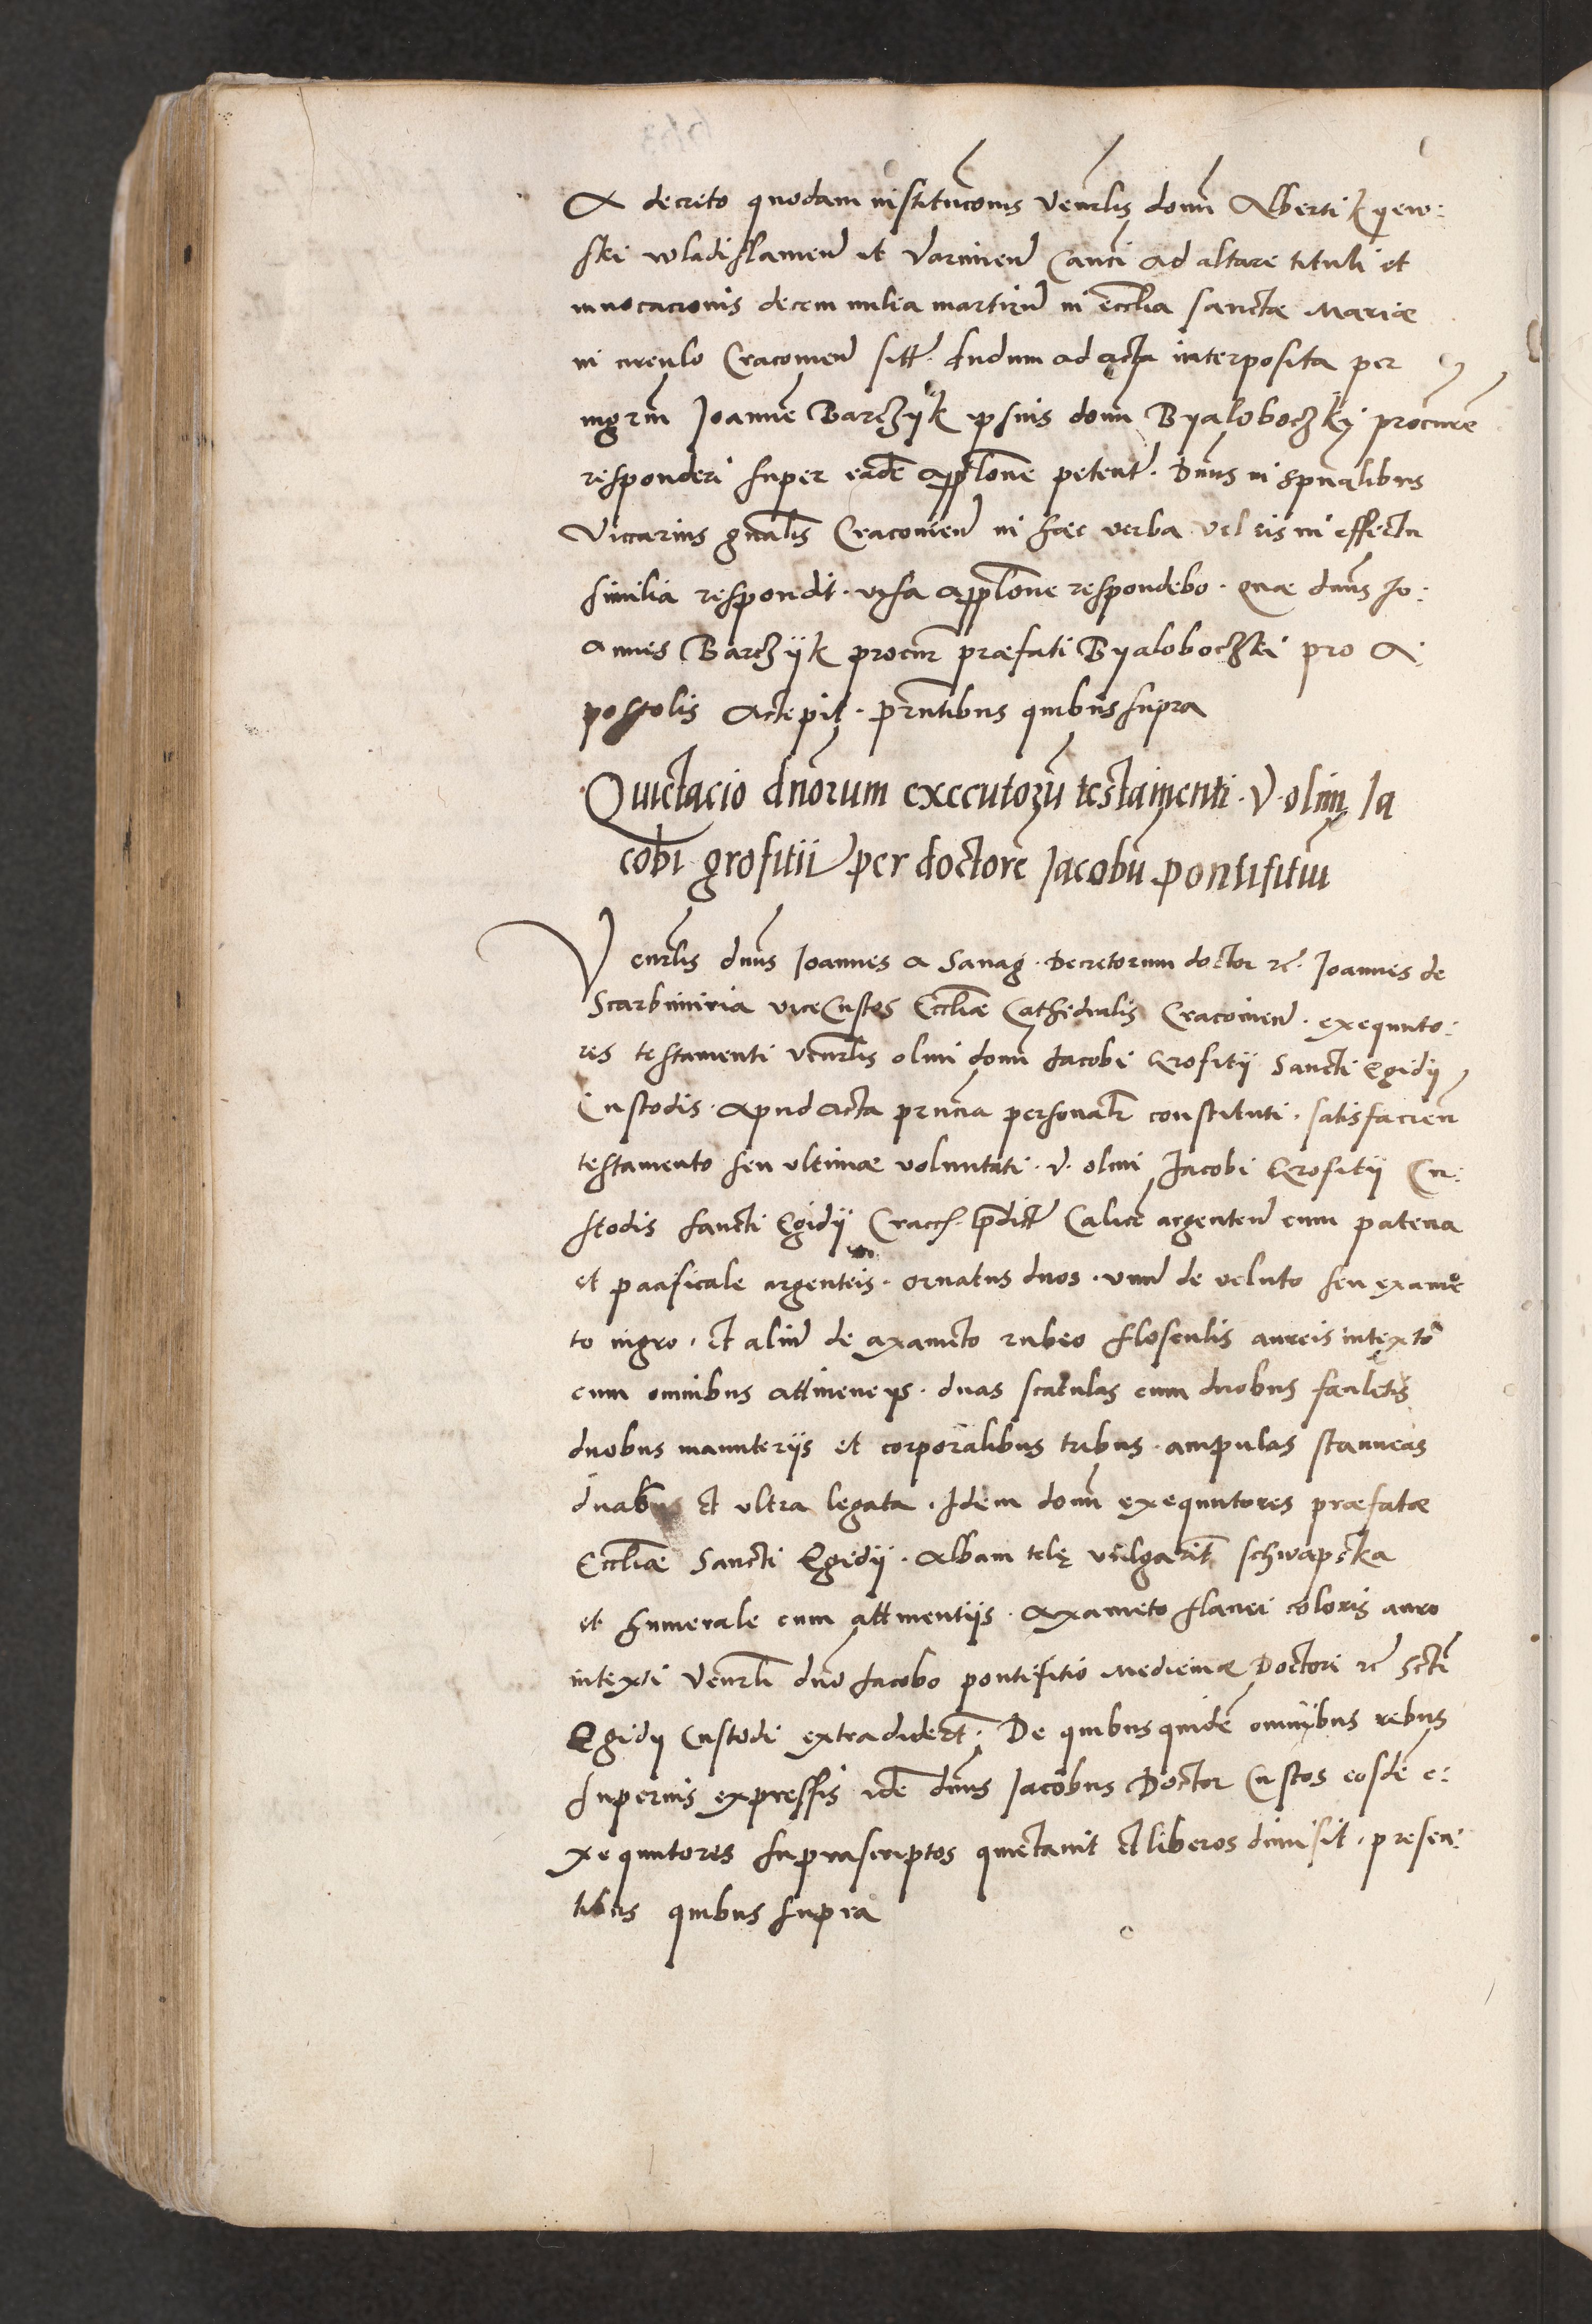 A decreto quodam institucōnis Venrlis domī Alberti Kyew:
ski wladislauieñ et Varmieñ Canci ad altare tituli et
inuocacionis decem milia martirū in ecclīa sanctæ Mariæ
in circulo Cracouieñ sitt. dudum ad acta interposita per
mgrm̄ Ioannē Barczijk ipsius domī Byaloboczkÿ procurē
responderi super eadē applōne petent. Dnūs in spūalibus
Viccarius gnālis Cracouieñ in hæc verba vel eis in effectu
similia respondit. visa applōne respondebo. quæ dnūs Io:
annes Barczijk procur præfati Byaloboczki pro A:
postolis accepit. prntibus quibus supra
Quictacio dnōrum executorū testamenti. V. olim Ia
cobi grofitii per doctorē Iacobū pontifitiū
Venrlis dnūs Ioannes a Sanag. Decretorum doctor rc̄. Ioannes de
Scarbimiria viceCustos Eccliæ Cathedralis Cracouieñ. exequuto:
res testamenti venrlis olim domī Iacobi Erofitij Sancti Egidij
Custodis. Apud Acta prn̄cia personalr̄ constituti. satisfacieñ
testamento seu ultimæ voluntati. v. olim Iacobi Erofitij Cu:
stodis sancti Egidij Cracch. p̄dict Calicē argenteū cum patena
et pacificale argenteis. ornatus duos. vnū de veluto seu exame
to nigro. et aliū de axameto rubeo flosculis aureis intexto
cum omnibus attinencijs. duas scatulas cum duobus faculetis
duobus manuterijs et corporalibus tribus. ampulas stanneas
duabus et ultra legata. Idem domī exequutores præfatæ
Eccliæ Sancti Egidij. Albam telę vulgarit̄ schwapska
et humerale cum attinentijs. Axameto flauei coloris auro
intexti Venrli dnō Iacobo pontifitio Medicinæ Doctori rc̄ Sctī
Egidij Custodi extradidert. De quibus quidē omnibus rebus
superius expressis idē dnūs Iacobus Doctor Custos eosdē e:
xequutores suprascriptos quictauit et liberos dimisit. presen:
tibus quibus supra